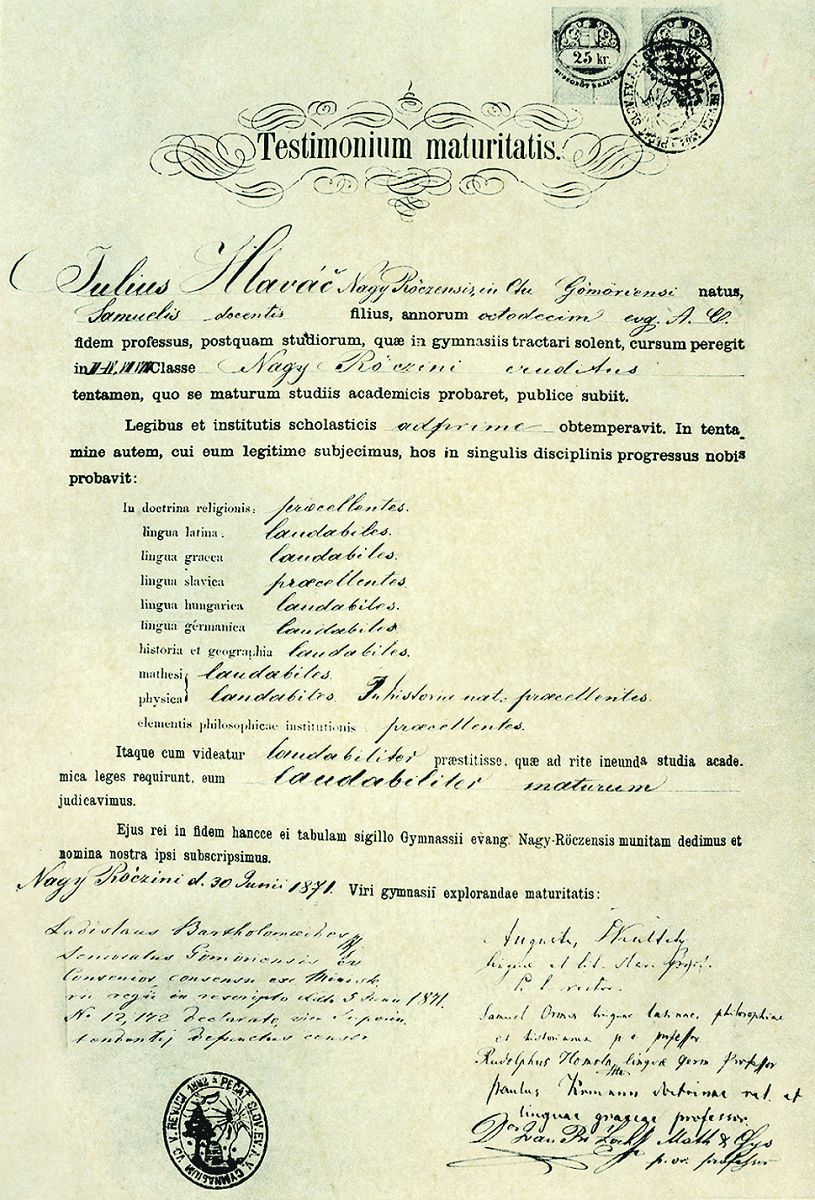 25 kr.
Testimonium maturitatis.
Julius Hlaváč Nagy Rőczensis, in Cttu Gömöriensi natus,
Samuelis docentis filius, annorum octodecim evg. A. C.
fidem professus, postquam studiorum, quæ in gymnasiis tractari solent, cursum peregit
in Classe Nagy Rőczini eruditus
tentamen, quo se maturum studiis academicis probaret, publice subiit.
Legibus et institutis scholasticis adprime obtemperavit. In tenta
mine autem, cui eum legitime subjecimus, hos in singulis disciplinis progressus nobis
probavit:
In doctrina religionis: præcellentes.
lingua latina. laudabiles.
lingua græca laudabiles.
lingua slavica præcellentes
lingua hungarica laudabiles.
lingua gérmanica laudabiles
historia et geographia laudabiles.
mathesi laudabiles.
physica laudabiles. In historia nat. præcellentes.
elementis philosophicae institutionis præcellentes.
Itaque cum videatur laudabiliter præstitisse, quæ ad rite ineunda studia acade-
mica leges requirunt, eum laudabiliter maturum
judicavimus.
Ejus rei in fidem hancce ei tabulam sigillo Gymnassii evang. Nagy-Röczensis munitam dedimus et
nomina nostra ipsi subscripsimus.
Nagy Rőczini d. 30 Junii 1871. Viri gymnasii explorandae maturitatis:
Ladislaus Bartholomaeides
Senioratus Gömöriensis
Consenior consensu exc. Minist.
rii regii in rescripto ddto 5 Junii 1871.
No 12,172 declarato, vice Superin.
tendentis defunctus censor
August.
linguæ et lit. slav. profess.
p. t. rector.
Samuel Ormis linguae latinae, philosophiae
et historiarum p. o. professor
Rudolphus Homola linguæ germ professor
Paulus doctrinae rel. et
linguae graecae professor
Dr Ivan Math &
p. or. professor
PEČAŤ SLOV. EV. A. V. GYMNASIUM VO V. REVÚCI 1862